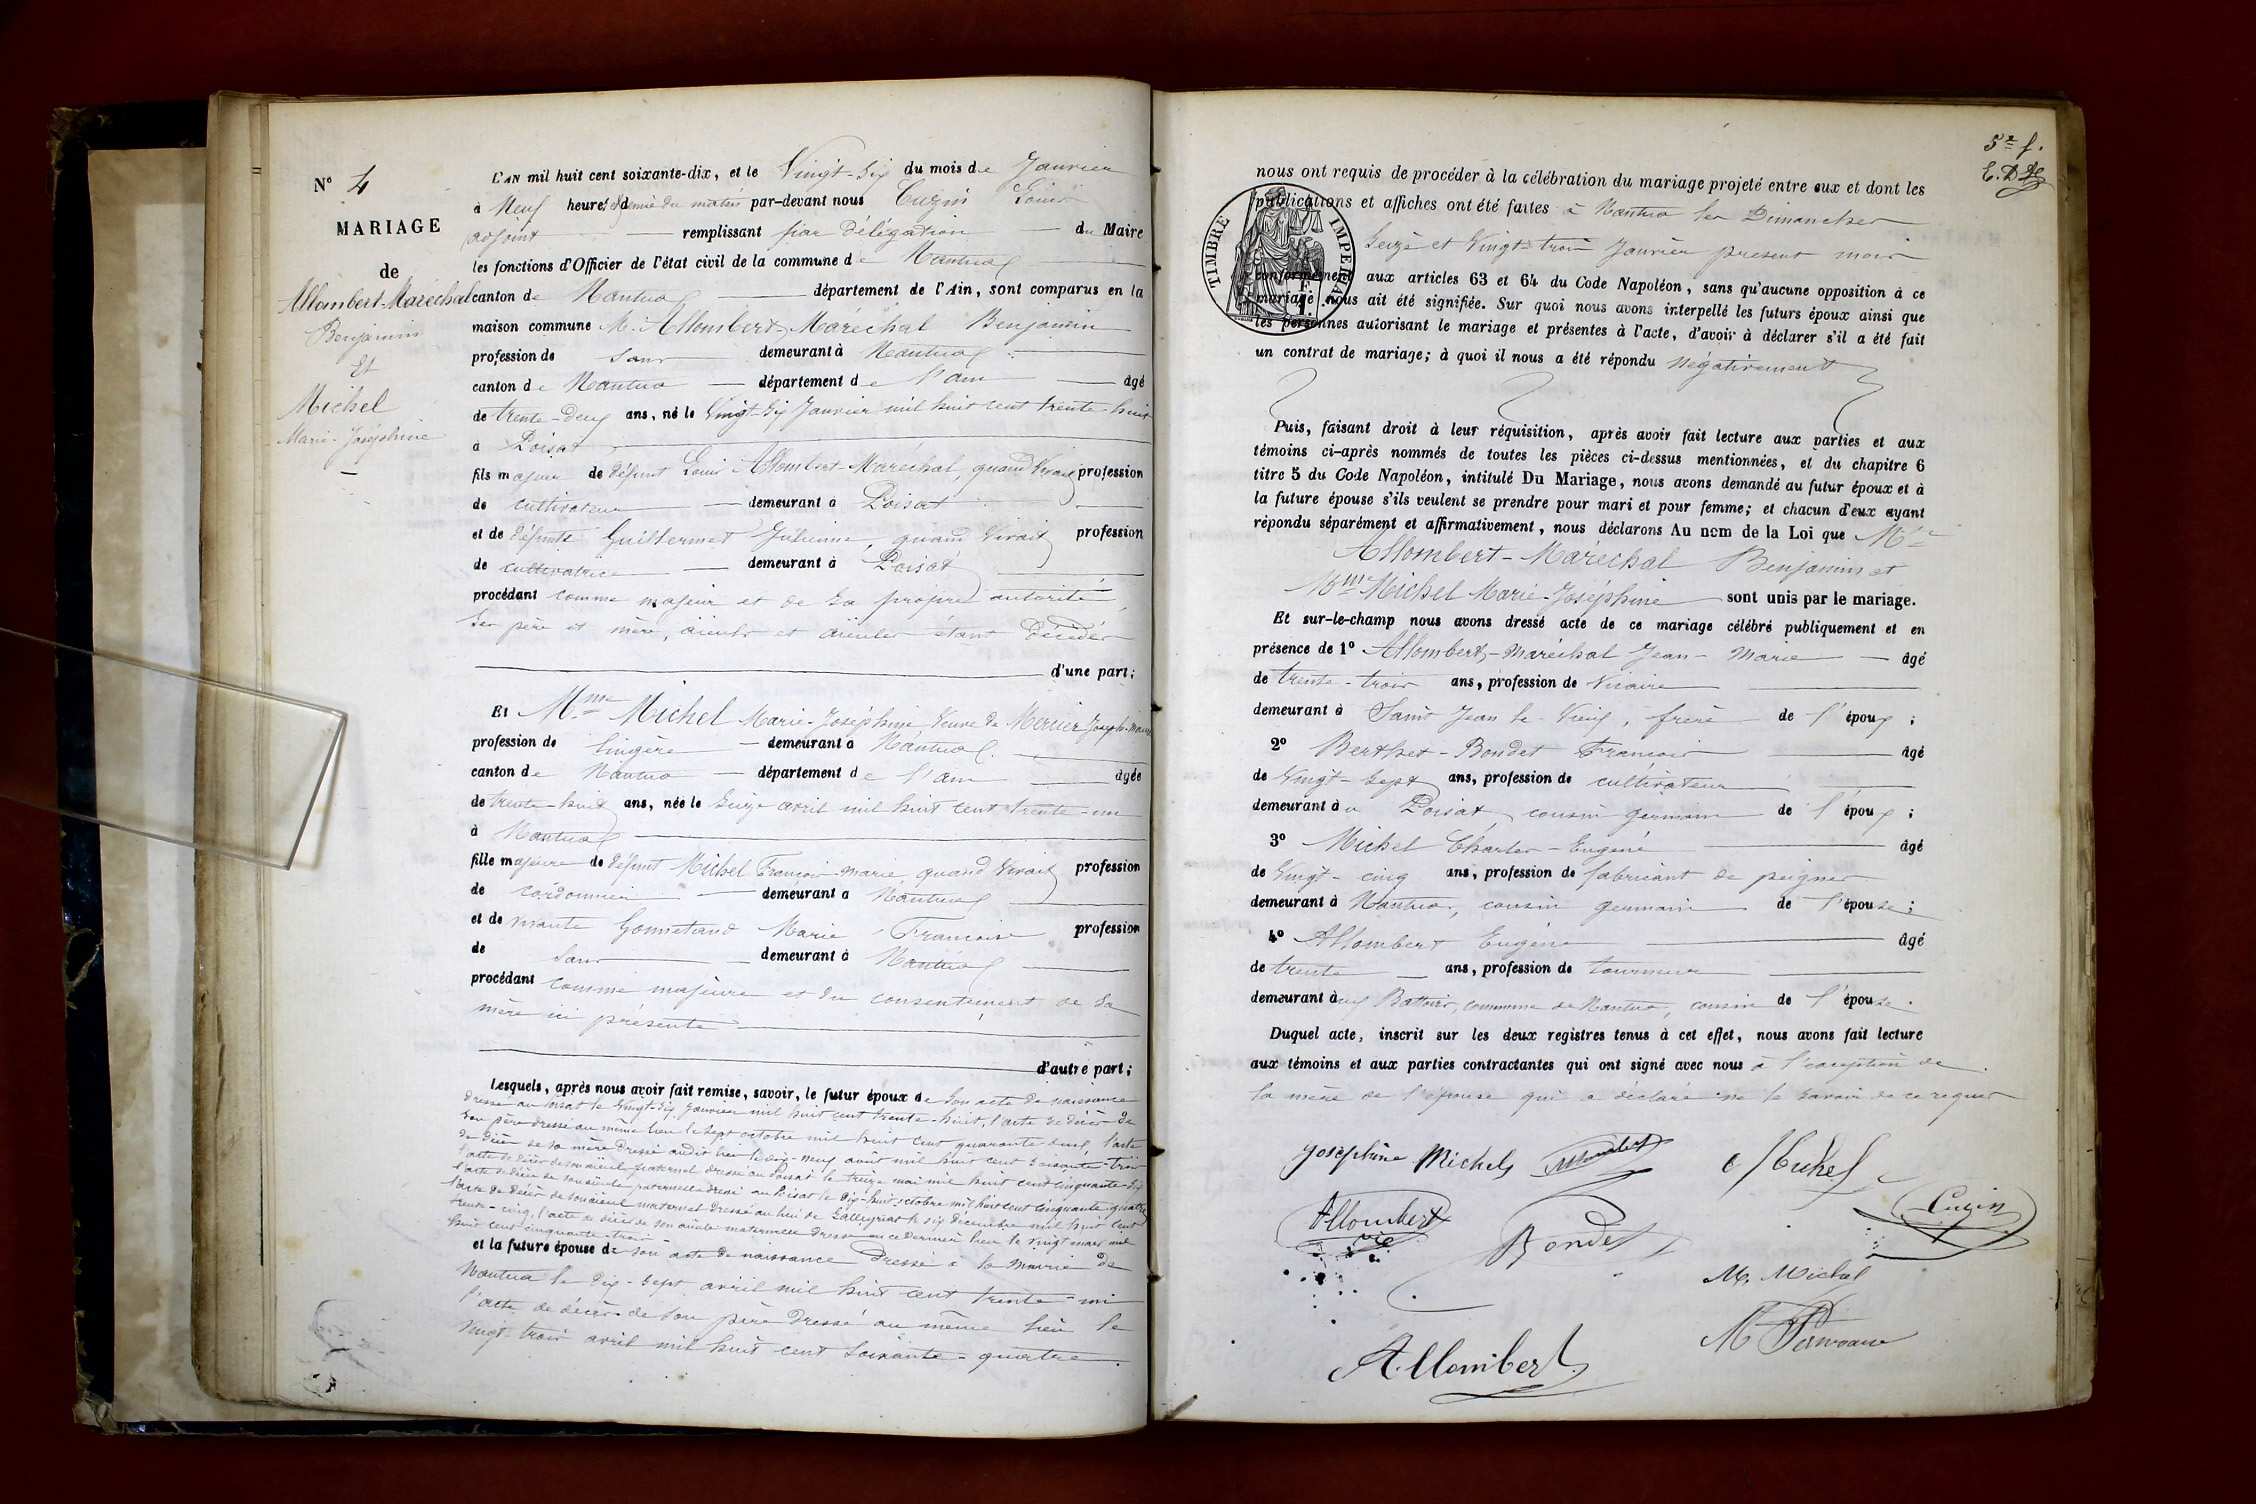 N° 4
MARIAGE
de
Allombert-Maréchal
Benjamin
Et
Michel
Marie-Joséphine
L'AN mil huit cent soixante-dix, et le Vingt-six du mois de Janvier
à Neuf heures et demie du matin par-devant nous Cuzin Louis
adjoint remplissant par délégation du Maire
les fonctions d'Officier de l'état civil de la commune de Nantua
canton de Nantua département de l'Ain, sont comparus en la
maison commune M. Allombert-Maréchal Benjamin
profession de sans demeurant à Nantua
canton de Nantua département de l'ain âgé
de trente-deux ans, né le Vingt-six Janvier mil huit cent trente-huit
à Poisat
fils majeur de défunt Louis Allombert-Maréchal, quand vivait profession
de cultivateur demeurant à Poisat
et de défunte Guillermet Julienne, quand vivait profession
de cultivatrice demeurant à Poisat
procédant comme majeur et de sa propre autorité,
ses père et mère, aïeuls et aïeules étant décédés
d'une part;
Et Mme Michel Marie-Joséphine Veuve de Mercier Joseph-Marie
profession de lingère demeurant à Nantua
canton de Nantua département de l'ain âgée
de trente-huit ans, née le seize avril mil huit cent trente-un
à Nantua
fille majeure de défunt Michel François-Marie, quand vivait profession
de cordonnier demeurant à Nantua
et de vivante Gonnetand Marie Françoise profession
de sans demeurant à Nantua
procédant comme majeure et du consentement de sa
mère ici présente
d'autre part;
Lesquels, après nous avoir fait remise, savoir, le futur époux de son acte de naissance
dressé au Poisat le vingt-six Janvier mil huit cent trente-huit, l'acte de décès de
son père dressé au même lieu le sept octobre mil huit cent quarante-deux, l'acte
de décès de sa mère dressé audit lieu le dix-neuf août mil huit cent soixante-trois
l'acte de décès de son aïeul paternel dressé au Poisat le treize mai mil huit cent cinquante-six
l'acte de décès de son aïeule paternelle dressé au Poisat le dix-huit octobre mil huit cent cinquante-quatre
l'acte de décès de son aïeul maternel dressé au lieu de le six décembre mil huit cent
trente-cinq, l'acte de décès de son aïeule maternelle dressé en ce dernier lieu le vingt mars mil
huit cent cinquante-trois
et la future épouse de son acte de naissance dressé à la mairie de
Nantua le dix-sept avril mil huit cent trente-un
l'acte de décès de son père dressé au même lieu le
vingt-trois avril mil huit cent soixante-quatre.
5e f.
TIMBRE IMPERIAL
1 F.
nous ont requis de procéder à la célébration du mariage projeté entre eux et dont les
publications et affiches ont été faites à Nantua les Dimanches
Seize et Vingt-trois Janvier présent mois
conformément aux articles 63 et 64 du Code Napoléon, sans qu'aucune opposition à ce
mariage nous ait été signifiée. Sur quoi nous avons interpellé les futurs époux ainsi que
les personnes autorisant le mariage et présentes à l'acte, d'avoir à déclarer s'il a été fait
un contrat de mariage; à quoi il nous a été répondu négativement
Puis, faisant droit à leur réquisition, après avoir fait lecture aux parties et aux
témoins ci-après nommés de toutes les pièces ci-dessus mentionnées, et du chapitre 6
titre 5 du Code Napoléon, intitulé Du Mariage, nous avons demandé au futur époux et à
la future épouse s'ils veulent se prendre pour mari et pour femme; et chacun d'eux ayant
répondu séparément et affirmativement, nous déclarons Au nom de la Loi que Mr
Allombert-Maréchal Benjamin et
Mme Michel Marie-Joséphine sont unis par le mariage.
Et sur-le-champ nous avons dressé acte de ce mariage célébré publiquement et en
présence de 1° Allombert-Maréchal Jean-Marie âgé
de trente-trois ans, profession de Vicaire
demeurant à Saint Jean le Vieux, frère de l'époux;
2° Berthet-Bondet François âgé
de Vingt-sept ans, profession de cultivateur
demeurant à Poisat, cousin germain de l'époux;
3° Michel Charles-Eugène âgé
de Vingt-cinq ans, profession de fabricant de peignes
demeurant à Nantua, cousin germain de l'épouse;
4° Allombert Eugène âgé
de trente ans, profession de tourneur
demeurant aux Battoirs, commune de Nantua, cousin de l'épouse.
Duquel acte, inscrit sur les deux registres tenus à cet effet, nous avons fait lecture
aux témoins et aux parties contractantes qui ont signé avec nous à l'exception de
la mère de l'épouse qui a déclaré ne le savoir de ce requise
Joséphine Michel
Allombert
Michel
Allombert
vic
Bondet
Cuzin
M. Michel
Allombert